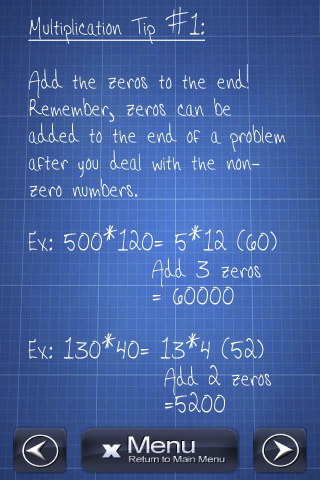 Multiplication Tip #1:
Add the zeros to the end!
Remember, zeros can be
added to the end of a problem
after you deal with the non-
zero numbers.
Ex: 500*120= 5*12 (60)
Add 3 zeros
= 60000
Ex: 130*40= 13*4 (52)
Add 2 zeros
=5200
x Menu
Return to Main Menu